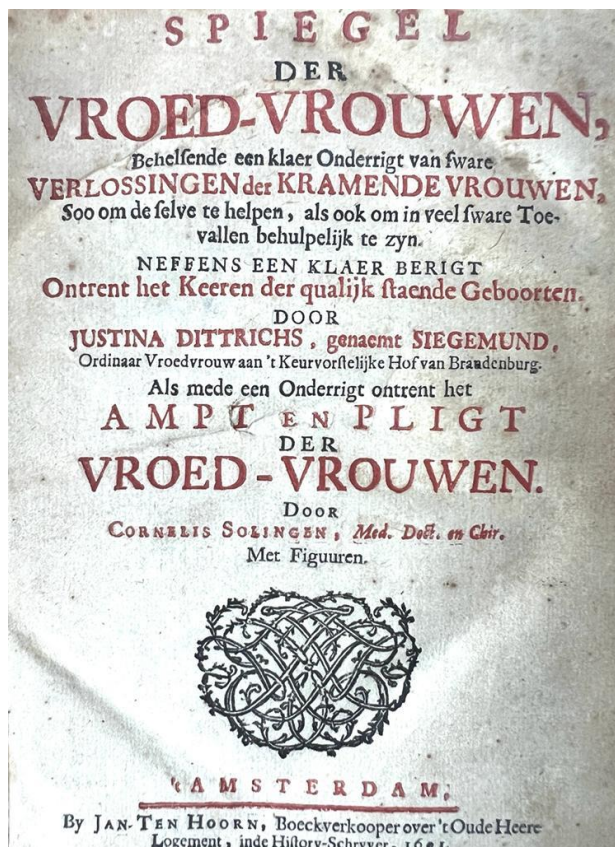 SPIEGEL
DER
VROED-VROUWEN,
Behelſende een klaer Onderrigt van ſware
VERLOSSINGEN der KRAMENDE VROUWEN,
Soo om de ſelve te helpen, als ook om in veel ſware Toe-
vallen behulpelijk te zyn.
NEFFENS EEN KLAER BERIGT
Ontrent het Keeren der qualijk ſtaende Geboorten.
DOOR
JUSTINA DITTRICHS, genaemt SIEGEMUND,
Ordinaar Vroedvrouw aan 't Keurvorſtelijke Hof van Brandenburg.
Als mede een Onderrigt ontrent het
AMPT EN PLIGT
DER
VROED-VROUWEN.
DOOR
CORNELIS SOLINGEN, Med. Doct. en Chir.
Met Figuuren.
't AMSTERDAM,
By JAN TEN HOORN, Boeckverkooper over 't Oude Heere
Logement, inde Hiſtory-Schryver.